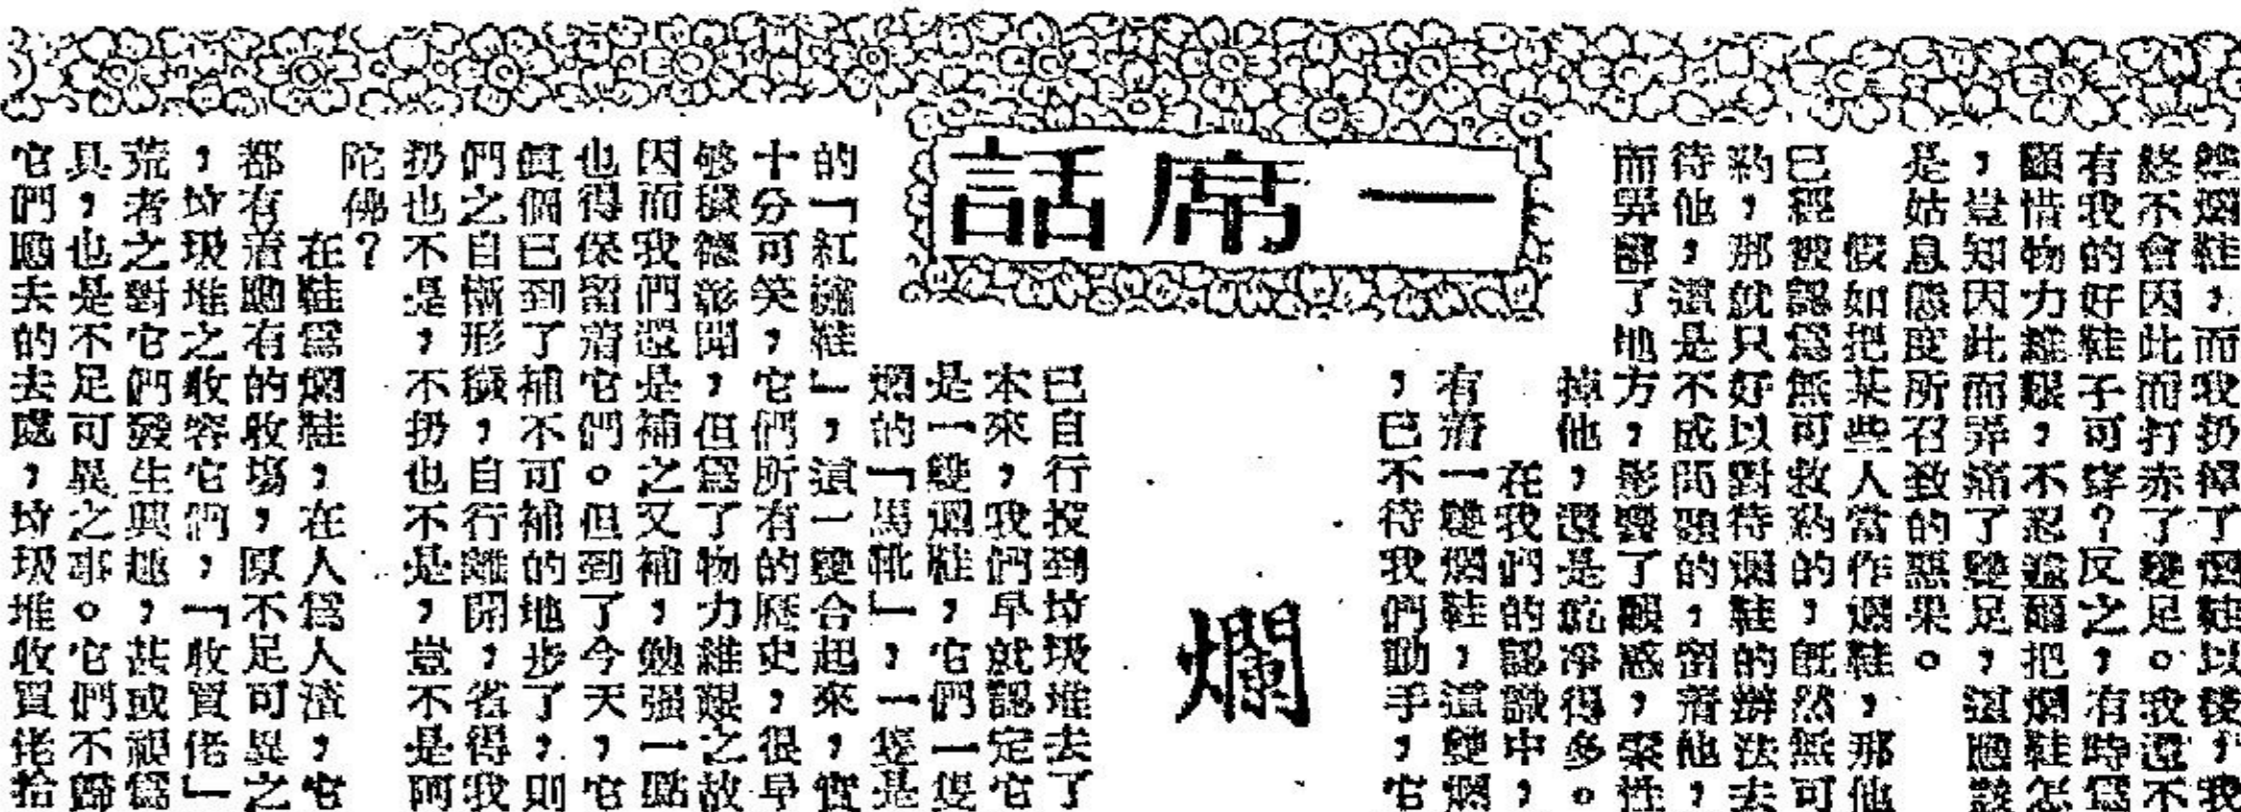 雙爛鞋,而我扔掉了爛鞋以後,我
終不會因此而打赤了雙足。我還不
有我的好鞋子可穿?反之,有時爲
顧惜物力維艱,不忍遽爾把爛鞋怎
,豈知因此而弄痛了雙足,這應該
是姑息態度所召致的惡果。
假如把某些人當作爛鞋,那他
已經被認爲無可救葯的,既然無可
葯,那就只好以對待爛鞋的辦法去
待他,還是不成問題的,留着他,
而弄髒了地方,影響了觀感,索性
掉他,還是乾淨得多。
在我們的認識中,
有着一雙爛鞋,這雙爛
,已不待我們動手,它
一席話
爛
已自行投到垃圾堆去了
本來,我們早就認定它
是一雙爛鞋,它們一隻
爛的「馬靴」,一隻是
的「紅繡鞋」,這一雙合起來,實
十分可笑,它們所有的歷史,很早
够穢德彰聞,但爲了物力維艱之故
因而我們還是補之又補,勉强一點
也得保留着它們。但到了今天,它
眞個已到了補不可補的地步了,則
們之自慚形穢,自行離開,省得我
扔也不是,不扔也不是,豈不是阿
陀佛?
在鞋爲爛鞋,在人爲人渣,它
都有着應有的收場,原不足可異之
,垃圾堆之收容它們,「收買佬」
荒者之對它們發生興趣,甚或視爲
具,也是不足可異之事。它們不歸
它們應去的去處,垃圾堆收買佬拾